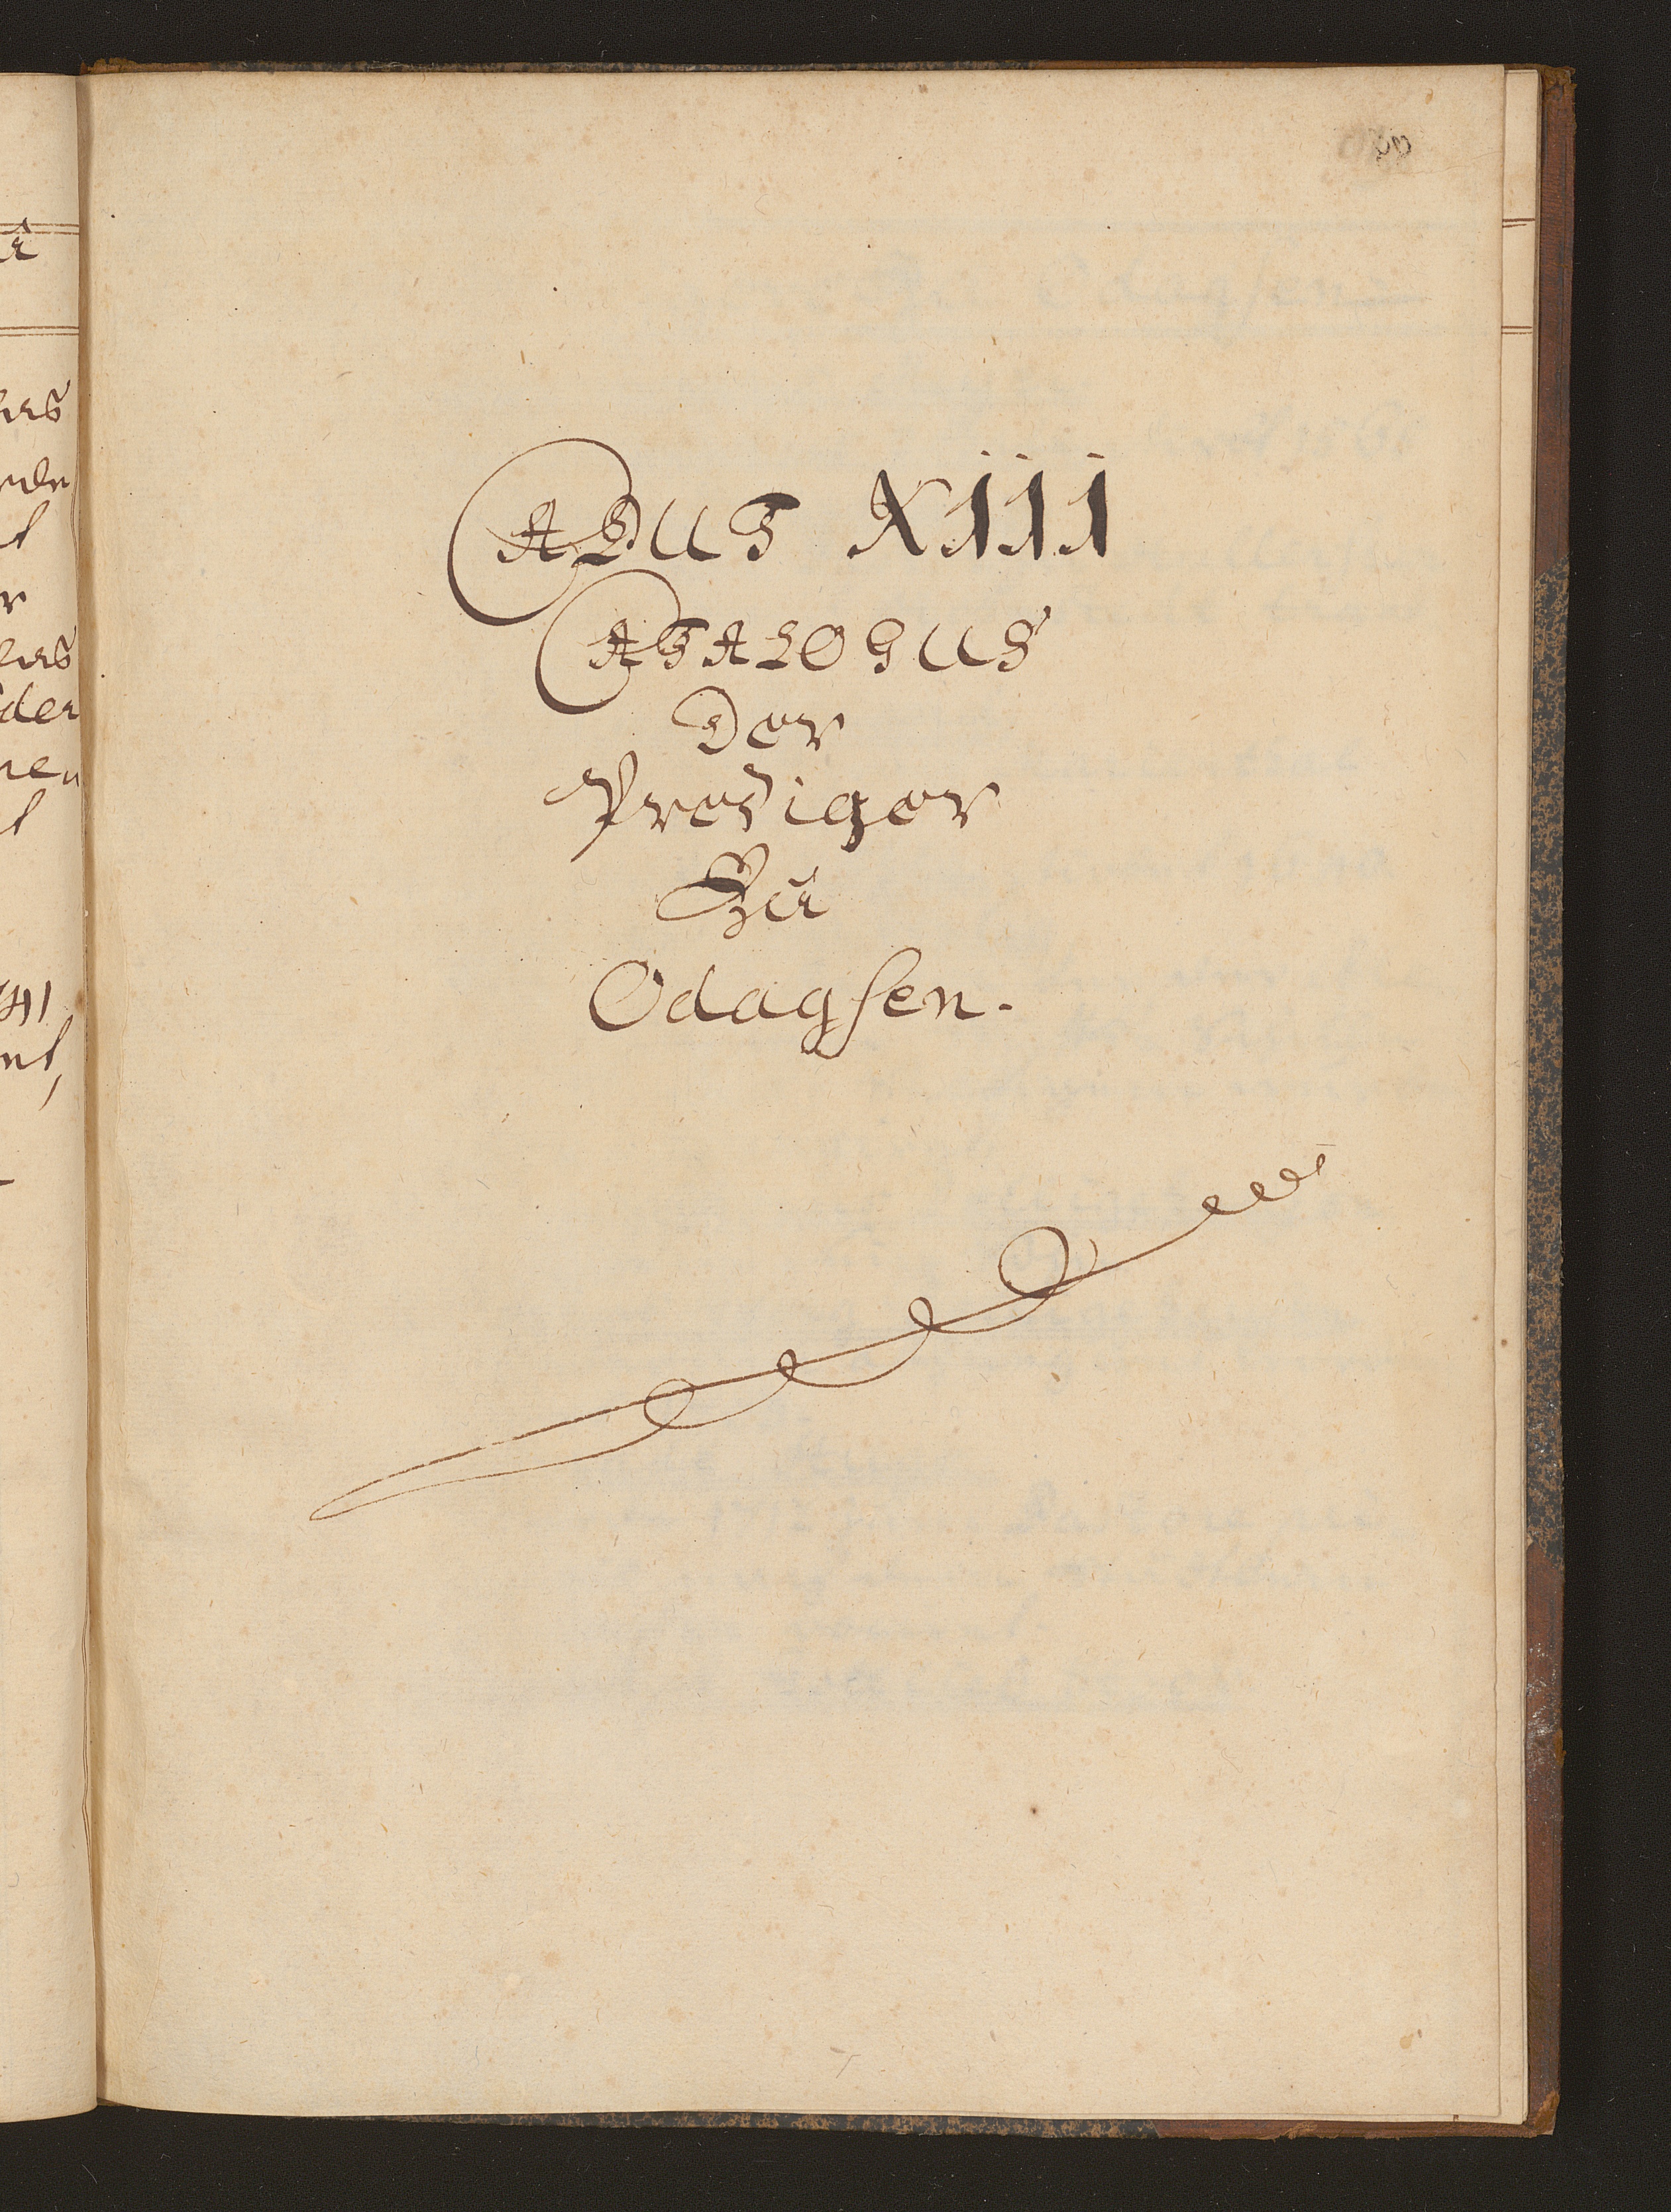 CAPUT XIII
CATALOGUS
Der
Prediger
Zu
Odagsen.